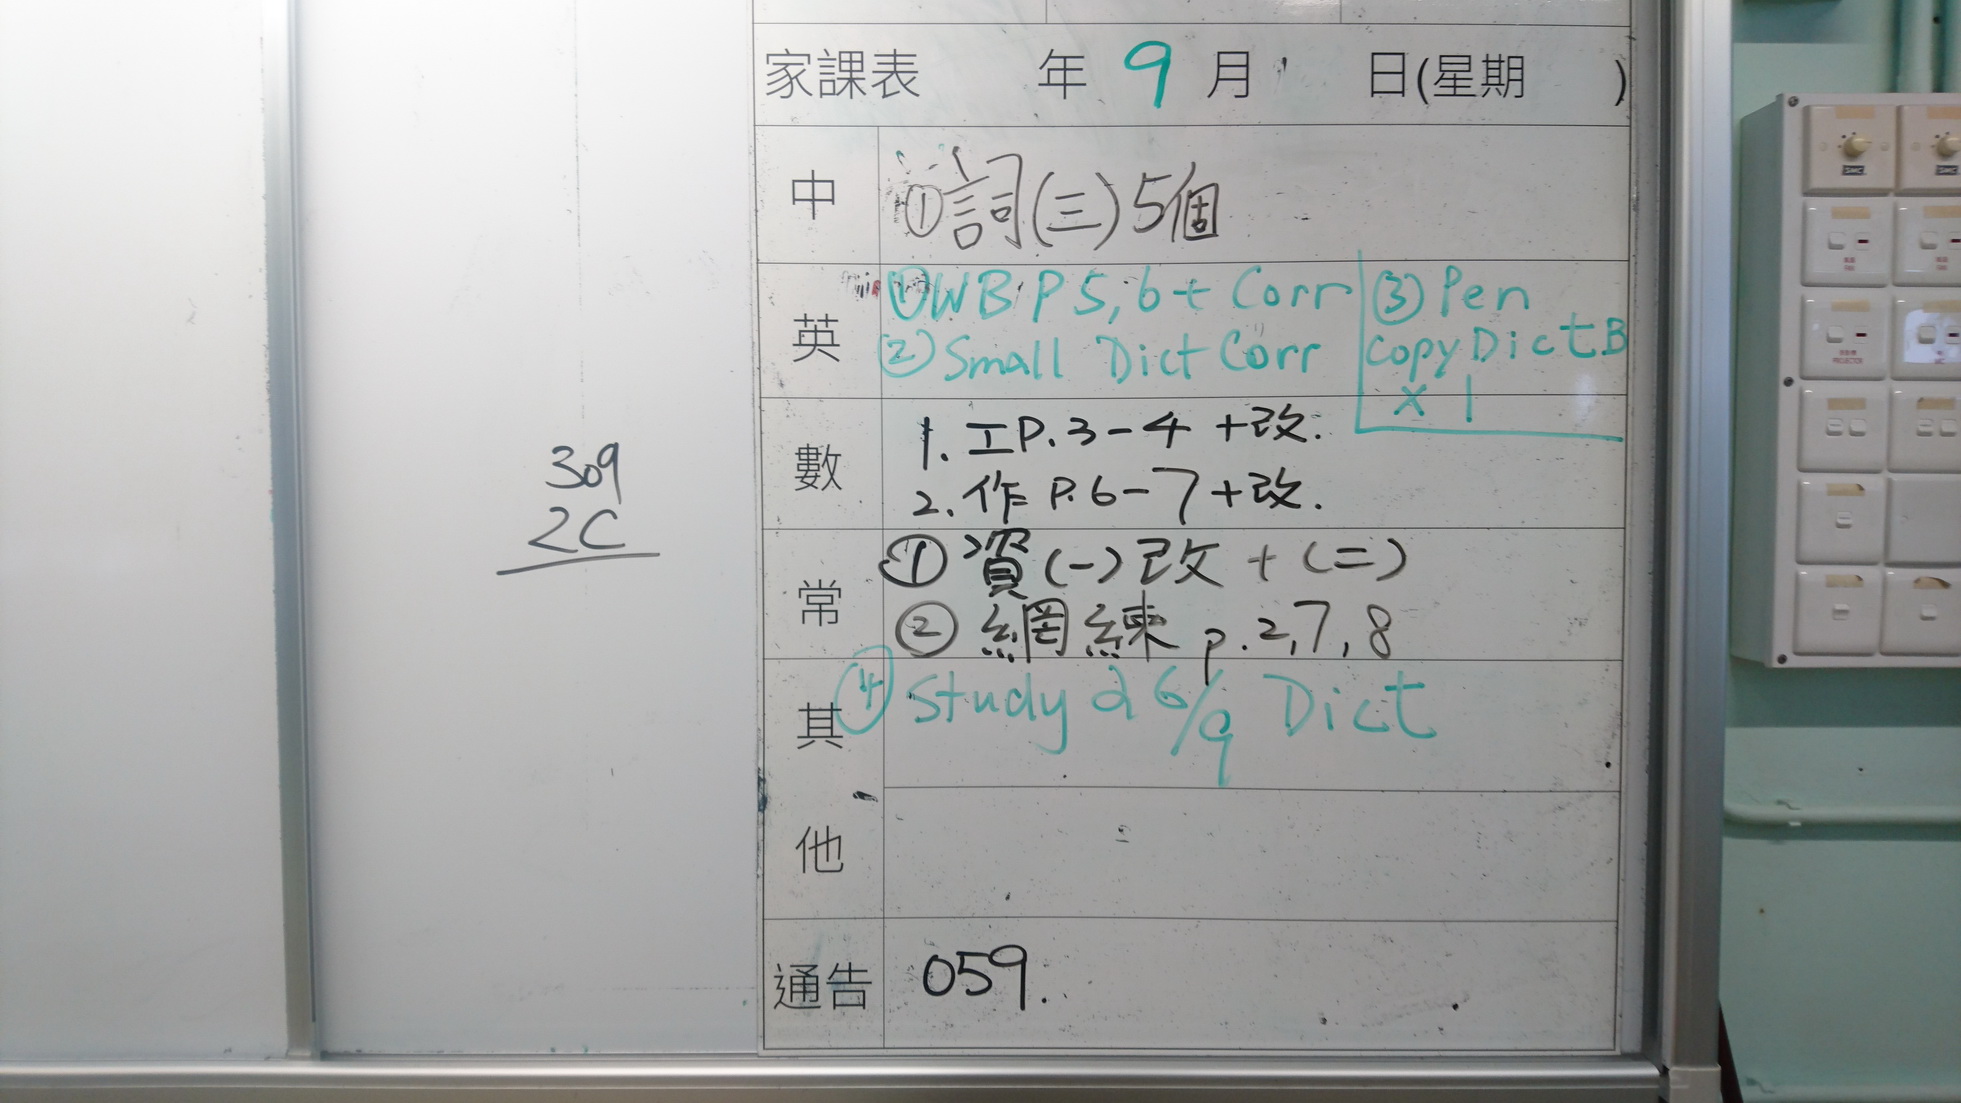 家課表 年 9 月 日(星期 )
中 ①詞(三)5個
英 ①WB P 5, 6 + Corr
②Small Dict Corr
③ Pen
copy Dict B
x 1
數 1. 工P.3-4 +改.
2. 作 P.6-7 +改.
常 ① 資(一)改 + (二)
② 網練 p.2,7,8
其他 ④ Study 26/9 Dict
通告 059.
309
2C